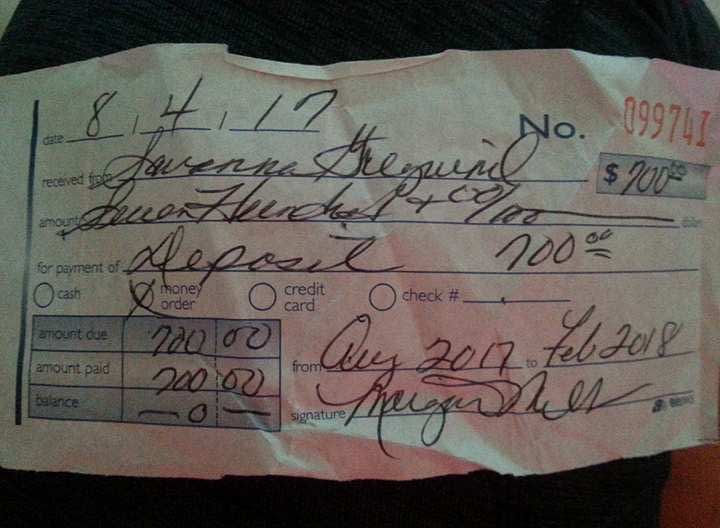 date 8, 4, 17 No. 099741
received from Savanna $ 700 00
amount Seven Hundred + 00/100 dollars
for payment of Deposit 700 00
cash money order credit card check #
amount due 700 00
amount paid 700 00
balance — 0 —
from Aug 2017 to Feb 2018
signature